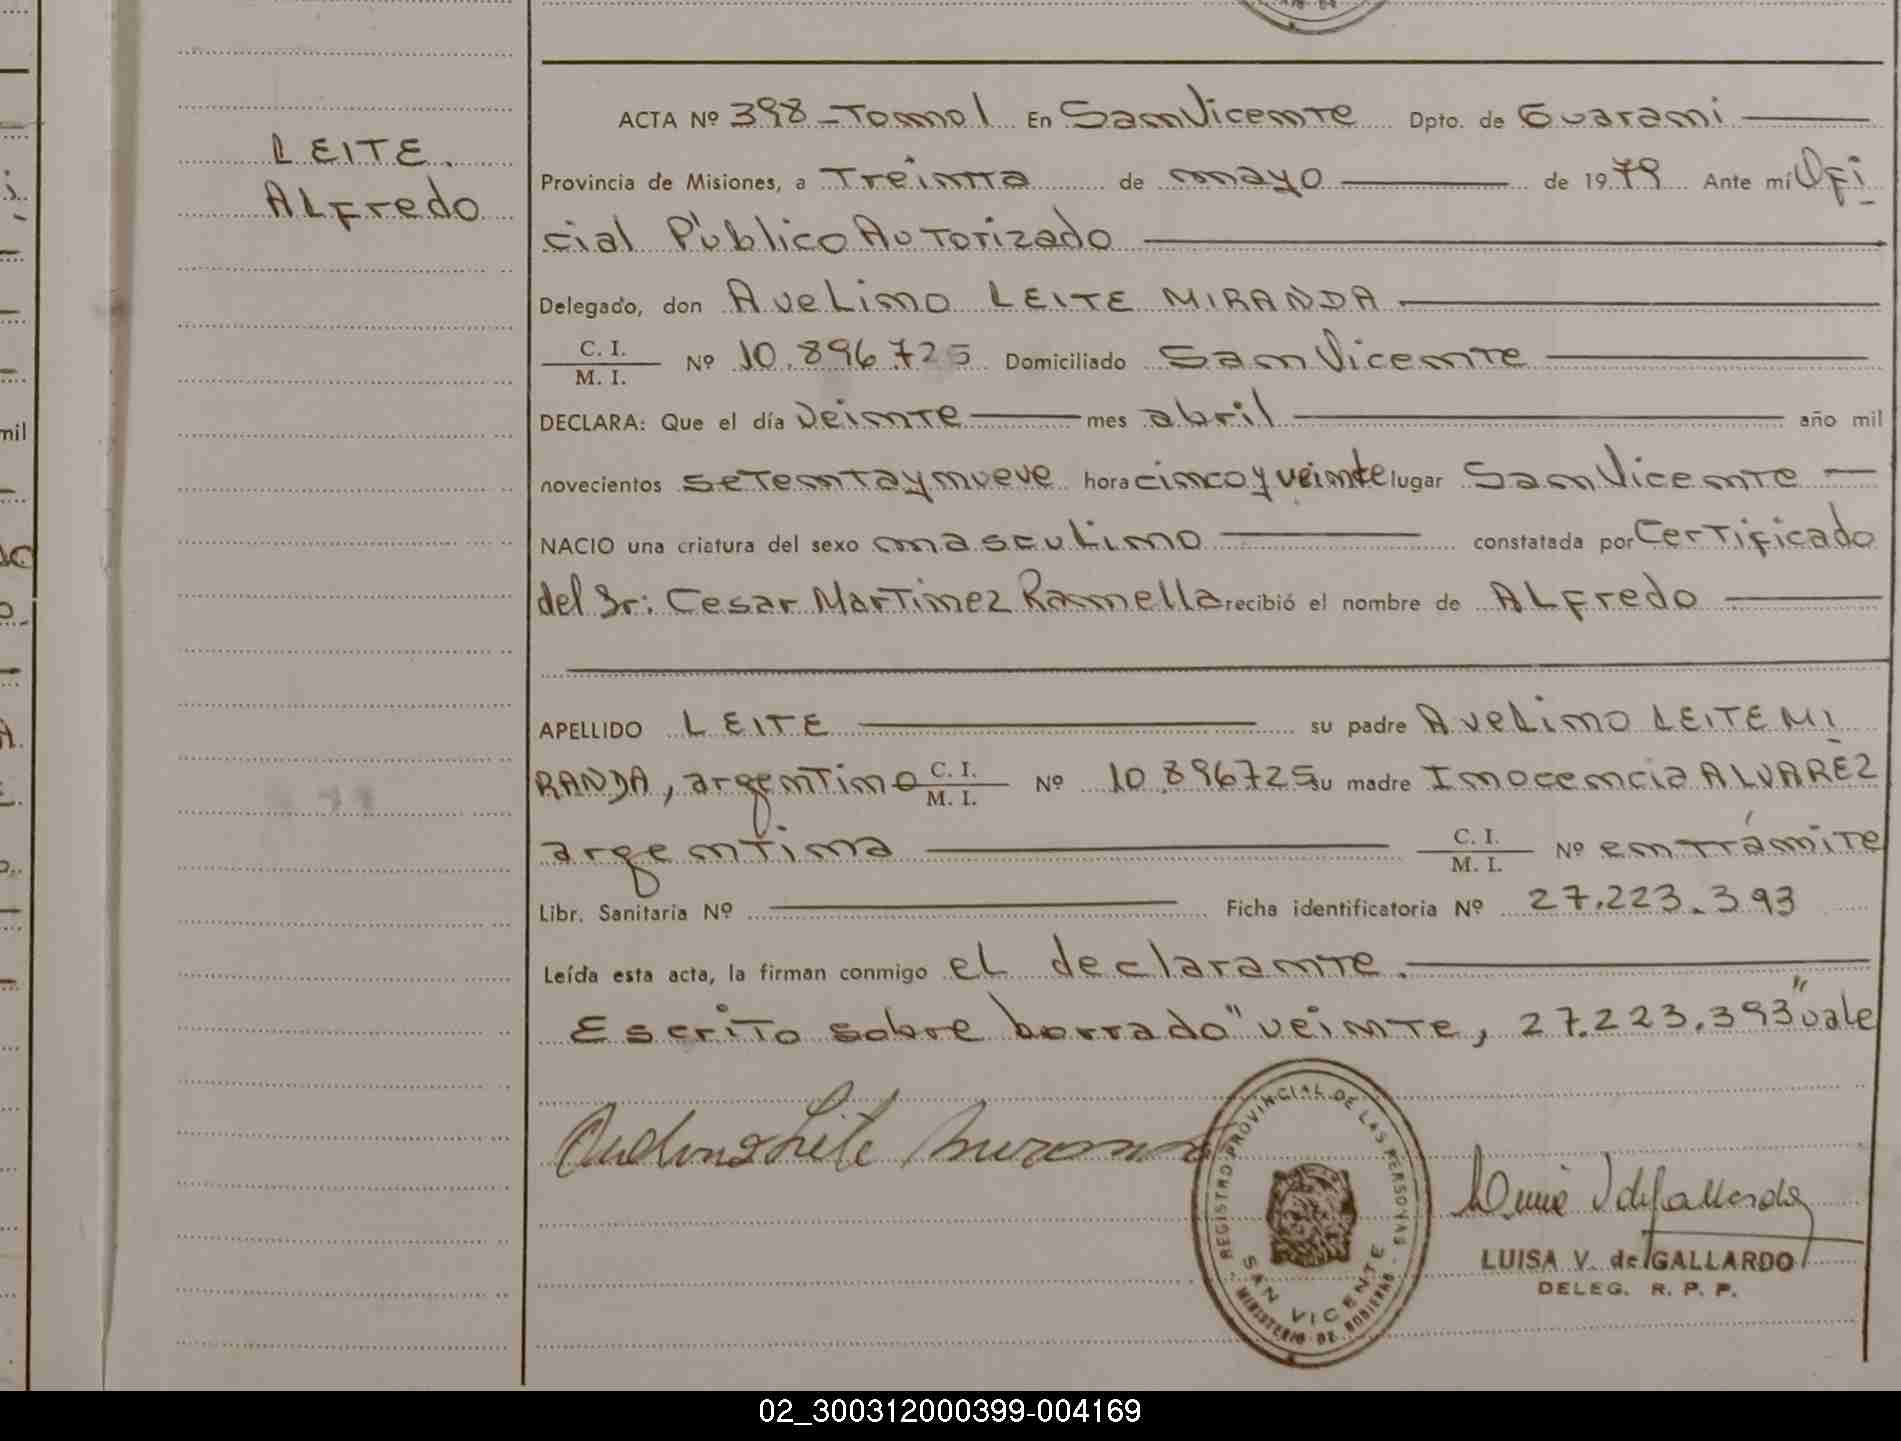 LEITE.
ALfredo
ACTA Nº 398 - Tomo I En San Vicente Dpto. de Guarani
Provincia de Misiones, a Treinta de mayo de 1979 Ante mí Ofi
cial Público Autorizado
Delegado, don Avelino LEITE MIRANDA
C. I.
M. I. Nº 10.896.725 Domiciliado San Vicente
DECLARA: Que el día veinte mes abril año mil
novecientos setenta y nueve hora cinco y veinte lugar San Vicente
NACIO una criatura del sexo masculino constatada por Certificado
del Sr: Cesar Martinez Ramella recibió el nombre de ALfredo
APELLIDO LEITE su padre Avelino LEITE MI
RANDA, argentino C. I. M. I. Nº 10.896725 su madre Inocencia ALVAREZ
argentina C. I. M. I. Nº en trámite
Libr. Sanitaria Nº Ficha identificatoria Nº 27.223.393
Leída esta acta, la firman conmigo el declarante.
Escrito sobre borrado "veinte, 27.223.393" vale
REGISTRO PROVINCIAL DE LAS PERSONAS
SAN VICENTE
MINISTERIO DE GOBIERNO
LUISA V. de GALLARDO
DELEG. R. P. P.
mil
02_300312000399-004169